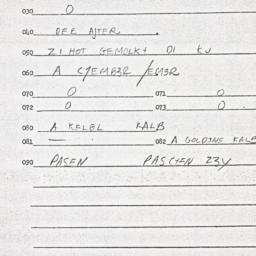 030 0
040 DER AJTER.
050 ZI HOT GEMOLKT DI KU
060 A CZEMBER/EMER
070 0 071 0
072 0 073 0
080 A KELBL KALB
081 — 082 A GOLDENE KALB
090 PASEN PASCIEN ZZY